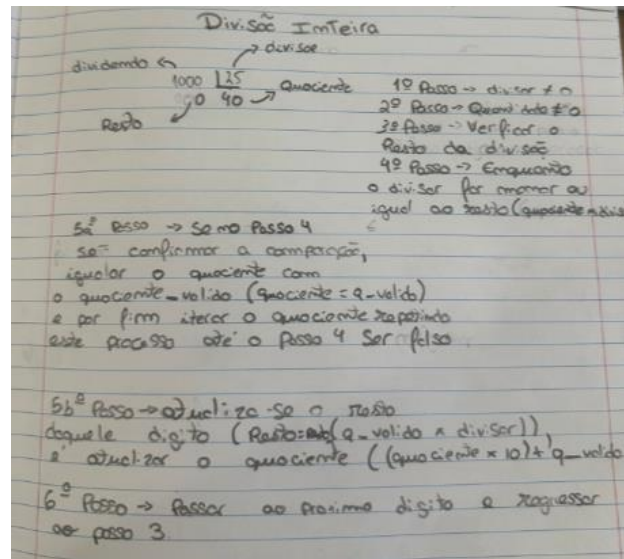 Divisão Inteira
dividendo
divisor
1000 |25
0 40
Quociente
Resto
1º Passo → divisor ≠ 0
2º Passo → ≠ 0
3º Passo → Verificar o
Resto da divisão
4º Passo → Enquanto
o divisor for menor ou
igual ao resto (quociente x
5aº Passo → Se no Passo 4
se confirmar a comparação,
igualar o quociente com
o quociente_valido (quociente = q_valido)
e por fim iterar o quociente repetindo
este processo até o Passo 4 ser falso
5bº Passo → atualiza-se o resto
daquele digito (Resto (q_valido x divisor)),
e atualizar o quociente ((quociente x 10) + q_valido
6º Passo → Passar ao proximo digito e regressar
ao passo 3.